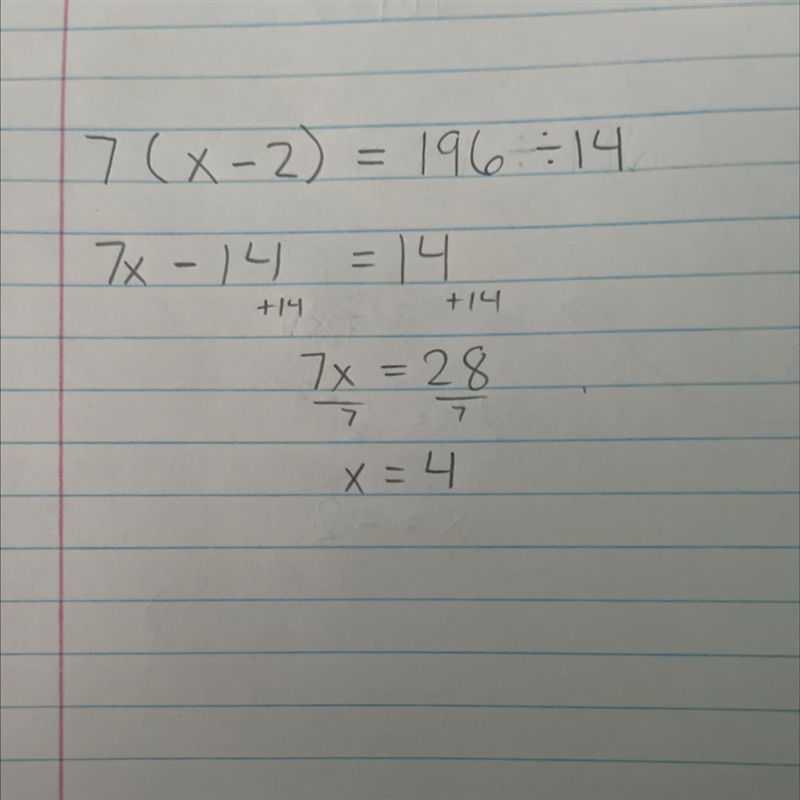 7(x-2) = 196 ÷ 14
7x - 14 = 14
+14 +14
7x = 28
7 7
x = 4